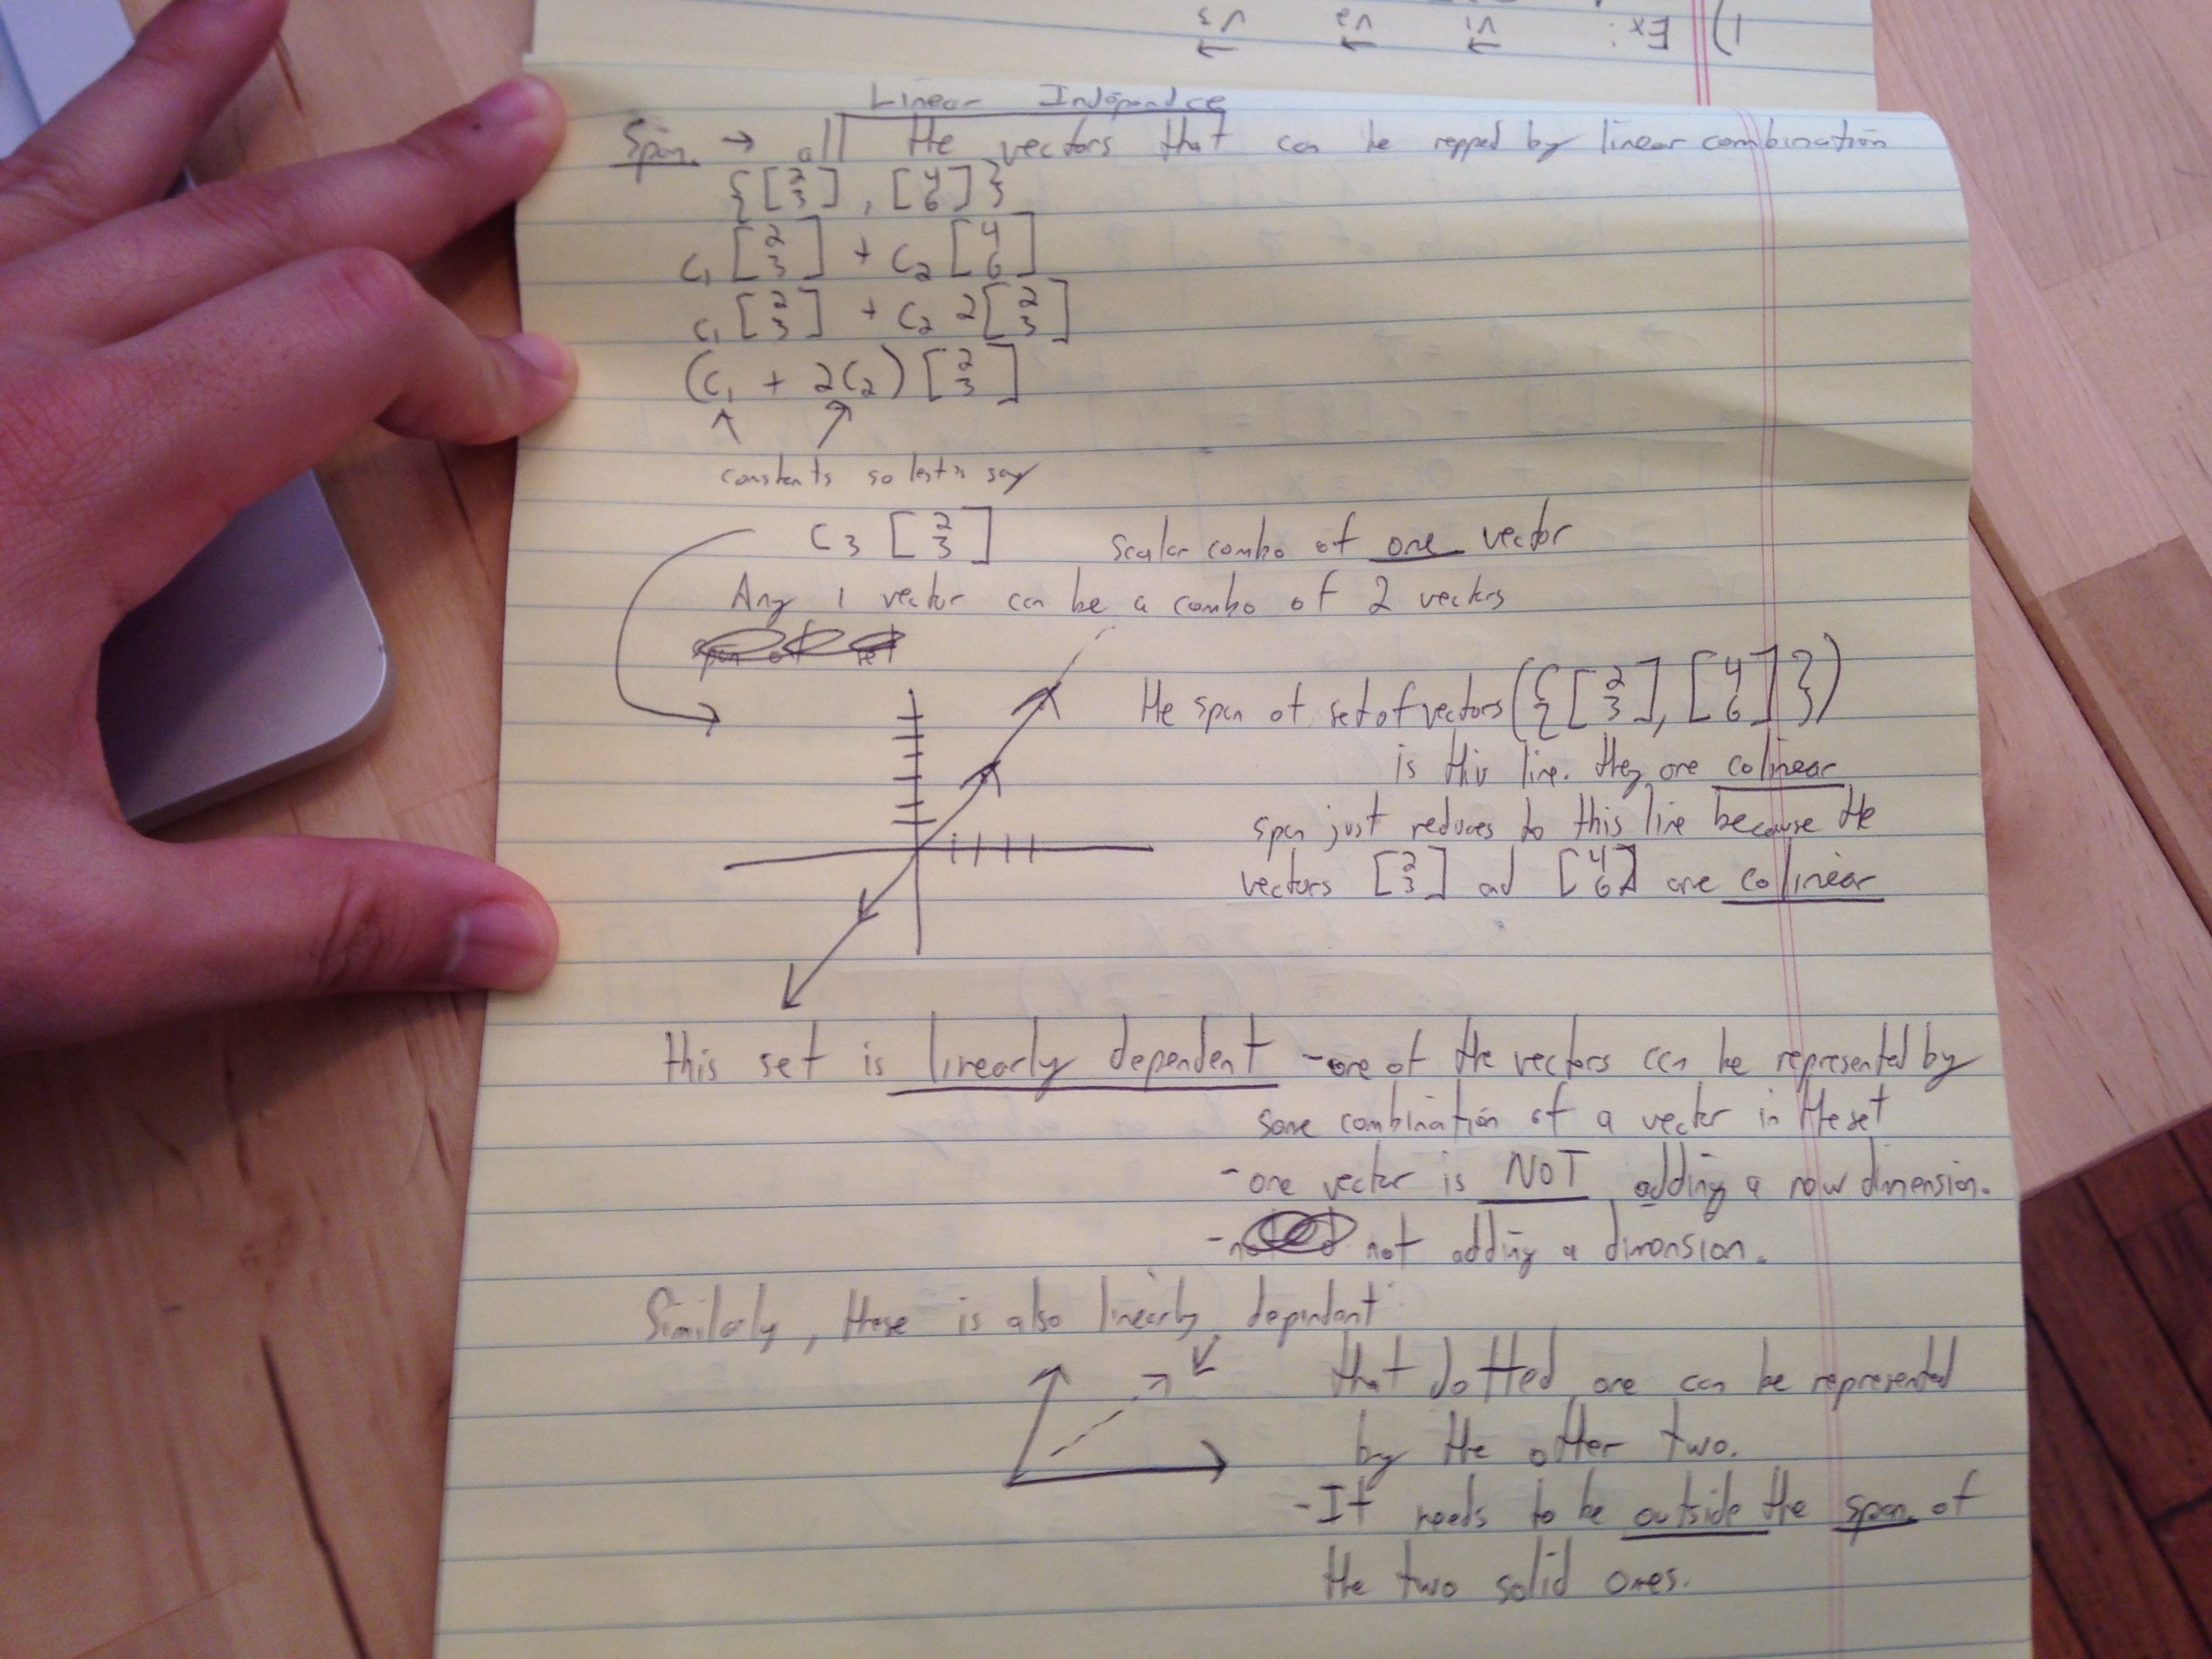 Linear Independence
Span → all the vectors that can be repped by linear combination
{[2 3], [4 6]}
c1 [2 3] + c2 [4 6]
c1 [2 3] + c2 2[2 3]
(c1 + 2c2) [2 3]
constants so lets say
c3 [2 3] scalar combo of one vector
Any 1 vector can be a combo of 2 vectors
the span of set of vectors ({[2 3], [4 6]})
is this line. they are colinear
span just reduces to this line because the
vectors [2 3] and [4 6] are colinear
this set is linearly dependent - one of the vectors can be represented by
some combination of a vector in the set
- one vector is NOT adding a new dimension.
- not adding a dimension.
Similarly, these is also linearly dependent:
that dotted one can be represented
by the other two.
- It needs to be outside the span of
the two solid ones.
Ex:
1)